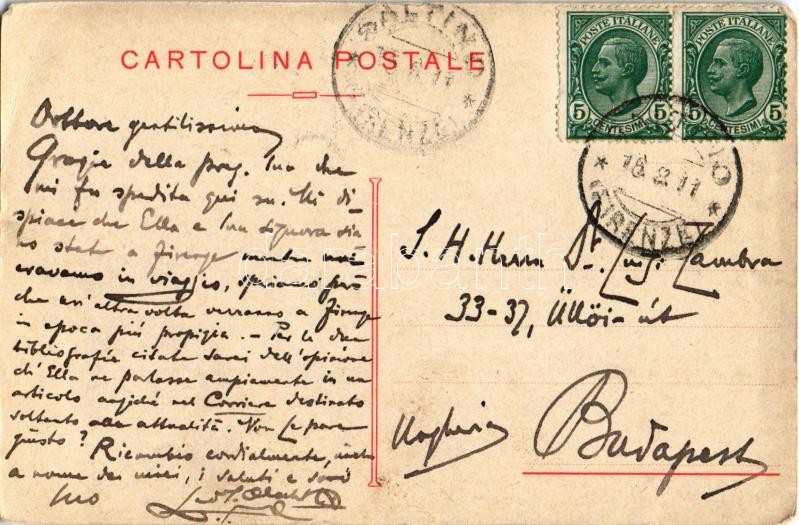 CARTOLINA POSTALE
SALTINO
16.8.11
(FIRENZE)
POSTE ITALIANE
5 CENTESIMI 5
POSTE ITALIANE
5 CENTESIMI 5
SALTINO
16.8.11
(FIRENZE)
Dottore gentilissimo,
Grazie della preg. Sua che
mi fu spedita qui su. Mi di-
spiace che Ella e Sua Signora sia-
no state a Firenze mentre noi
eravamo in viaggio, speriamo per-
che un'altra volta verranno a Firenze
in epoca più propizia. - Per le due
bibliografie citate sarei dell'opinione
ch'Ella ne parlasse ampiamente in un
articolo anziché nel Corriere destinato
soltanto alla attualità. Non Le pare
giusto? Ricambio cordialmente, anche
a nome dei miei, i saluti e sono
Suo
S. H. Herrn Dr. Luigi Zambra
33-37, Üllöi-út
Budapest
Ungheria
darabanth